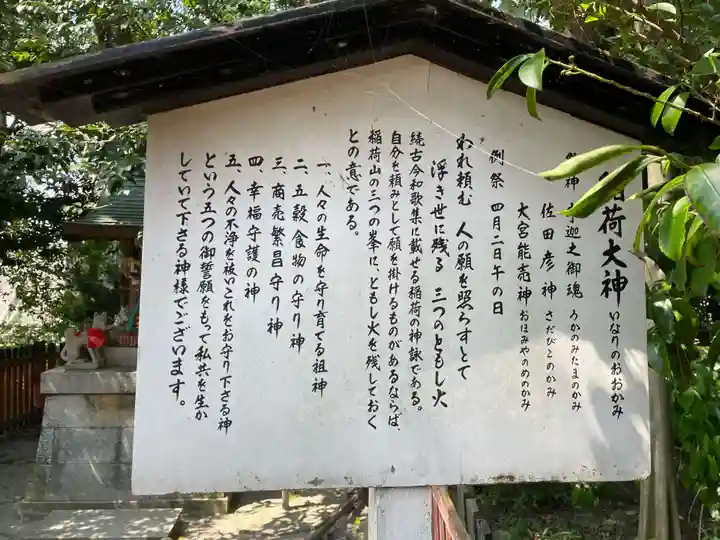 稲荷大神 いなりのおおかみ
神 迦之御魂 うかのみたまのかみ
佐田彦神 さだびこのかみ
大宮能売神 おほみやのめのかみ
例祭 四月二日午の日
われ頼む 人の願を照らすとて
浮き世に残る 三つのともし火
続古今和歌集に載せる稲荷の神詠である。
自分を頼みとして願を掛けるものがあるならば、
稲荷山の三つの峯に、ともし火を残しておく
との意である。
一、人々の生命を守り育てる祖神
二、五穀食物の守り神
三、商売繁昌守り神
四、幸福守護の神
五、人々の不浄を祓いこれをお守り下さる神
という五つの御誓願をもって私共を生か
していて下さる神様でございます。